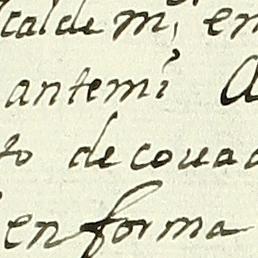 calde m, en
antemi A
to decouad
en forma